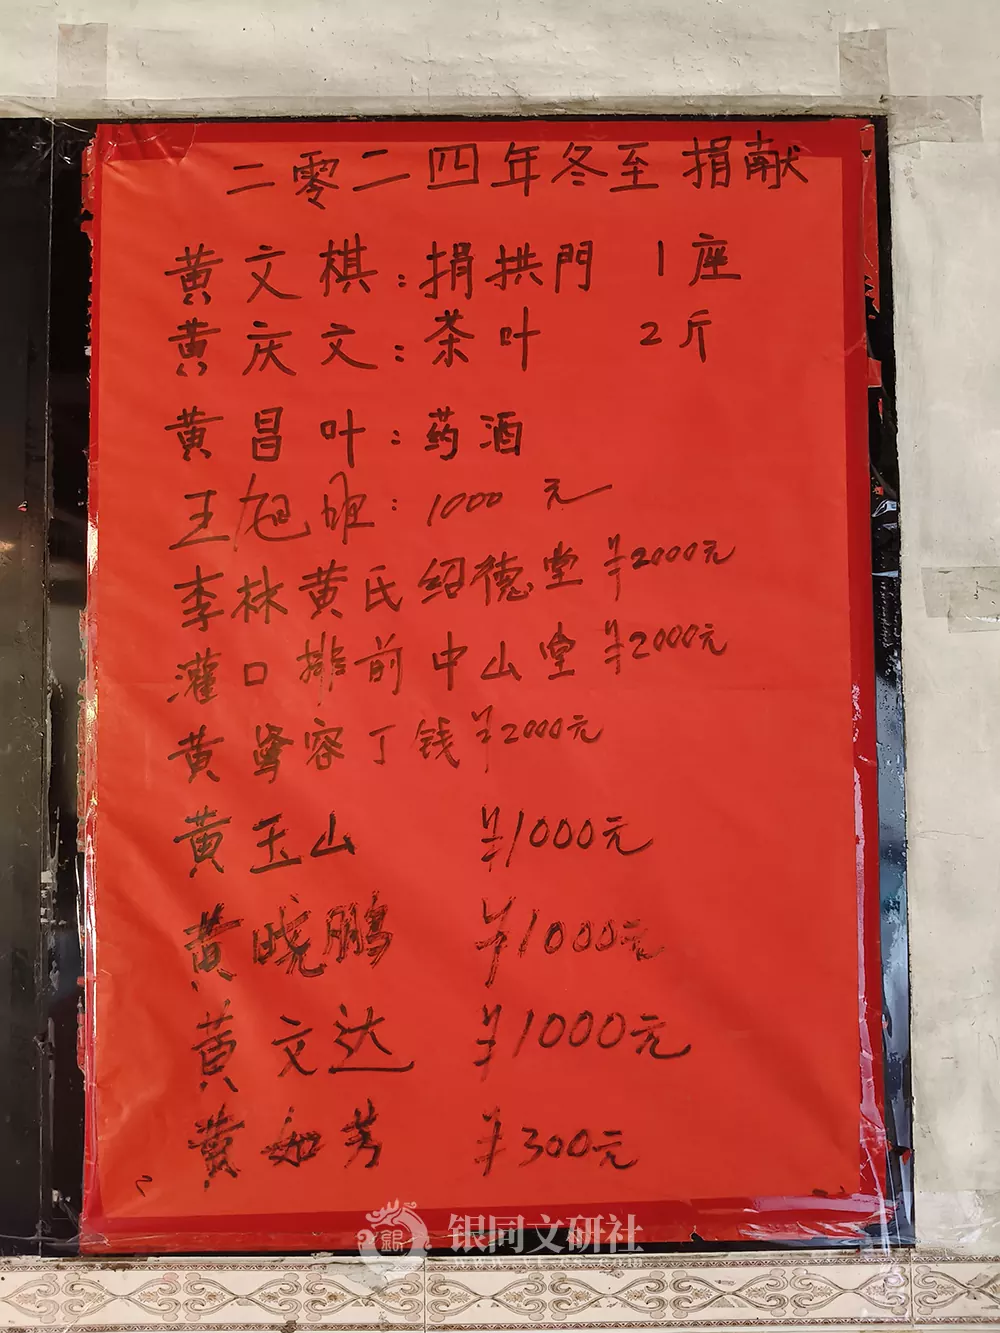 二零二四年冬至捐献
黄文棋：捐拱門 1座
黄庆文：茶叶 2斤
黄昌叶：药酒
王旭：1000元
李林黄氏绍德堂 ¥2000元
灌口排前中山堂 ¥2000元
黄容丁钱 ¥2000元
黄玉山 ¥1000元
黄晓鹏 ¥1000元
黄文达 ¥1000元
黄如芳 ¥300元
银同文研社